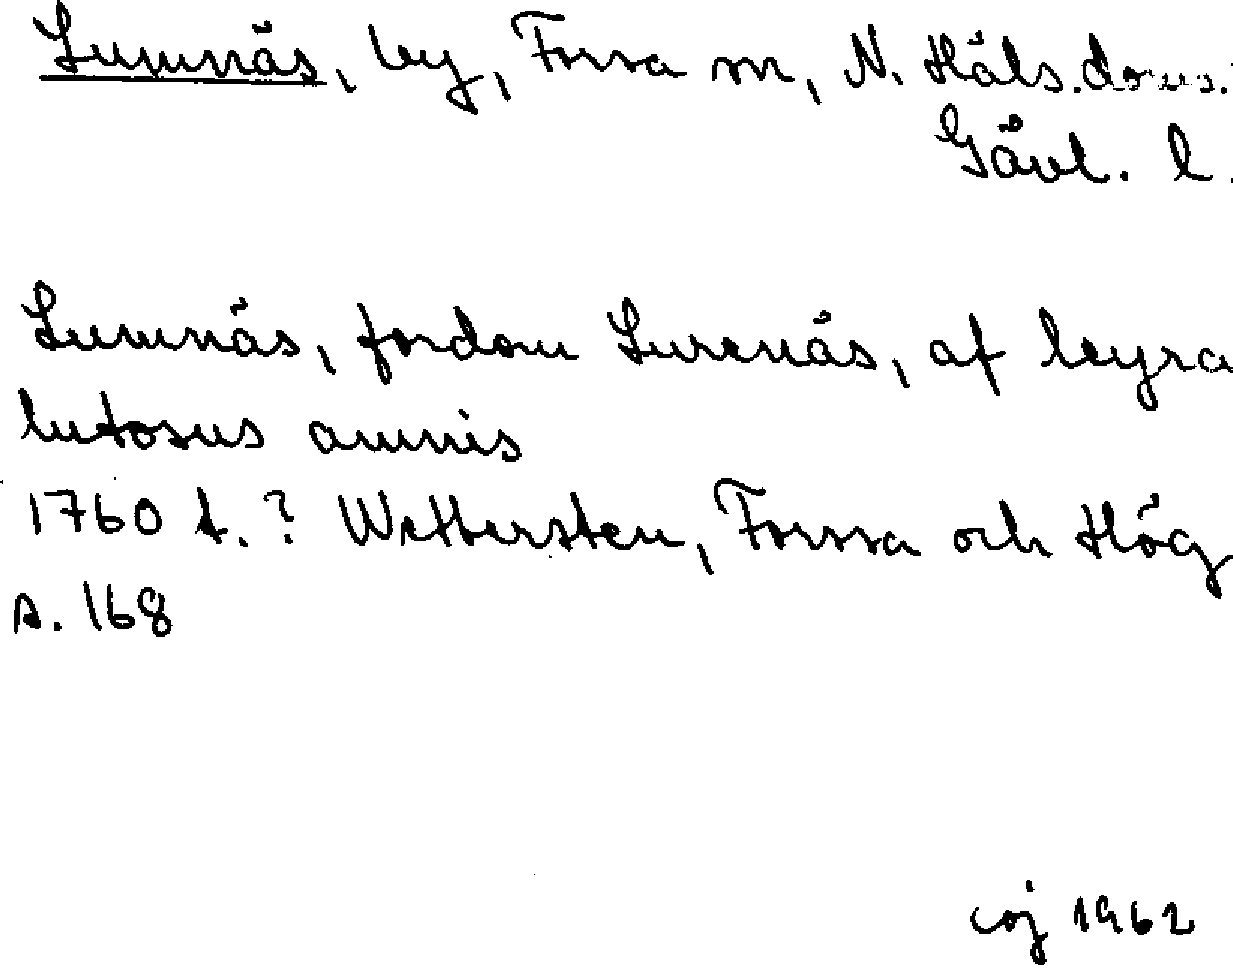 Lumnäs, by, Forsa sn, N. Häls. doms.
Gävl. l.
Lumnäs, fordom Lurenäs, af leyra
lutosus amnis
1760 t.? Wettersten, Forssa och Hög
s. 168
coj 1962